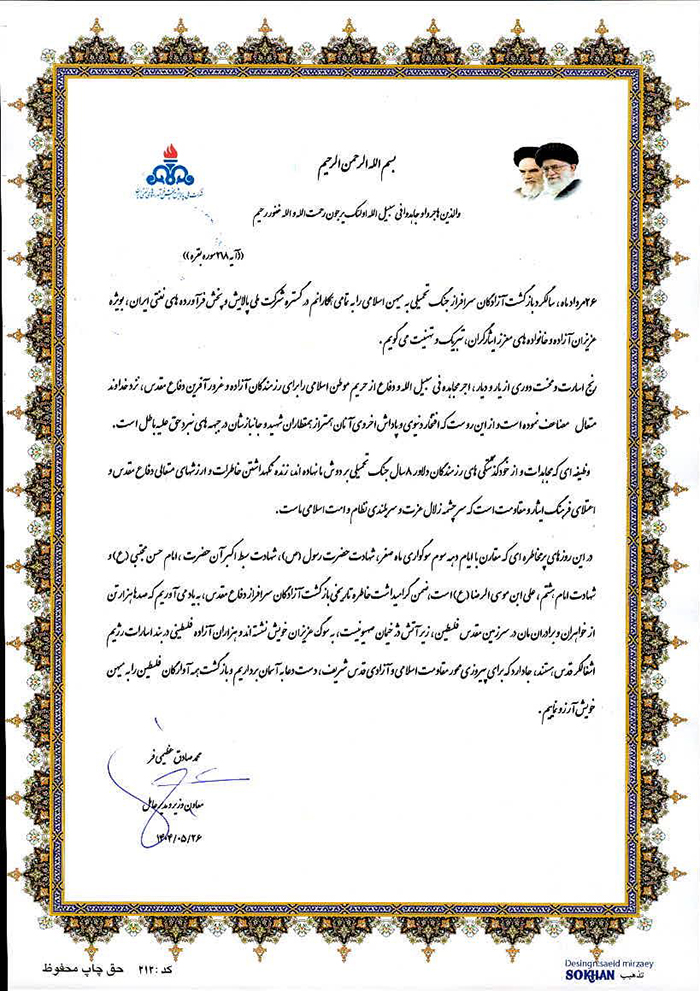 بسم الله الرحمن الرحیم
شرکت ملی پالایش و پخش فرآورده‌های نفتی ایران
والذین هاجرو او جاهدوا فی سبیل الله اولئک یرجون رحمت الله و الله غفور رحیم
((آیه ۲۱۸ سوره بقره))
۲۶مرداد ماه، سالگرد بازگشت آزادگان سرافراز جنگ تحمیلی به میهن اسلامی را به تمامی همکارانم در گستره شرکت ملی پالایش و پخش فرآورده های نفتی ایران، بویژه
عزیزان آزاده و خانواده های معزز ایثارگران، تبریک و تهنیت می گویم.
رنج اسارت و محنت دوری از یار و دیار، اجر مجاهده فی سبیل الله و دفاع از حریم موطن اسلامی را برای رزمندگان آزاده و غرور آفرین دفاع مقدس، نزد خداوند
متعال مضاعف نموده است و از این روست که افتخار دنیوی و پاداش اخروی آنان همتراز همقطاران شهید و جانبازشان در جبهه های نبرد حق علیه باطل است.
وظیفه ای که مجاهدات و از خودگذشتگی های رزمندگان دلاور ۸ سال جنگ تحمیلی بر دوش ما نهاده اند، زنده نگهداشتن خاطرات و ارزشهای متعالی دفاع مقدس و
اعتلای فرهنگ ایثار و مقاومت است که سرچشمه زلال عزت و سربلندی نظام و امت اسلامی ماست.
در این روزهای پرخاطره ای که مقارن با ایام دهه سوم سوگواری ماه صفر، شهادت حضرت رسول (ص)، شهادت سبط اکبر آن حضرت ، امام حسن مجتبی (ع) و
شهادت امام هشتم ، علی ابن موسی الرضا (ع) است، ضمن گرامیداشت خاطره تاریخی بازگشت آزادگان سرافراز دفاع مقدس، به یاد می آوریم که صدها هزار تن
از خواهران و برادران مان در سرزمین مقدس فلسطین، زیر آتش دژخیمان صهیونیست، به سوگ عزیزان خویش نشسته اند و هزاران آزاده فلسطینی در بند اسارات رژیم
اشغالگر قدس هستند، جا دارد که برای پیروزی محور مقاومت اسلامی و آزادی قدس شریف، دست دعا به آسمان برداریم و بازگشت همه آوارگان فلسطین را به میهن
خویش آرزو نماییم.
محمد صادق عظیمی فر
معاون وزیر و مدیرعامل
۱۴۰۴/۰۵/۲۶
Desingn:saeid mirzaey
تذهیب SOKHAN
کد : ۲۱۲ حق چاپ محفوظ